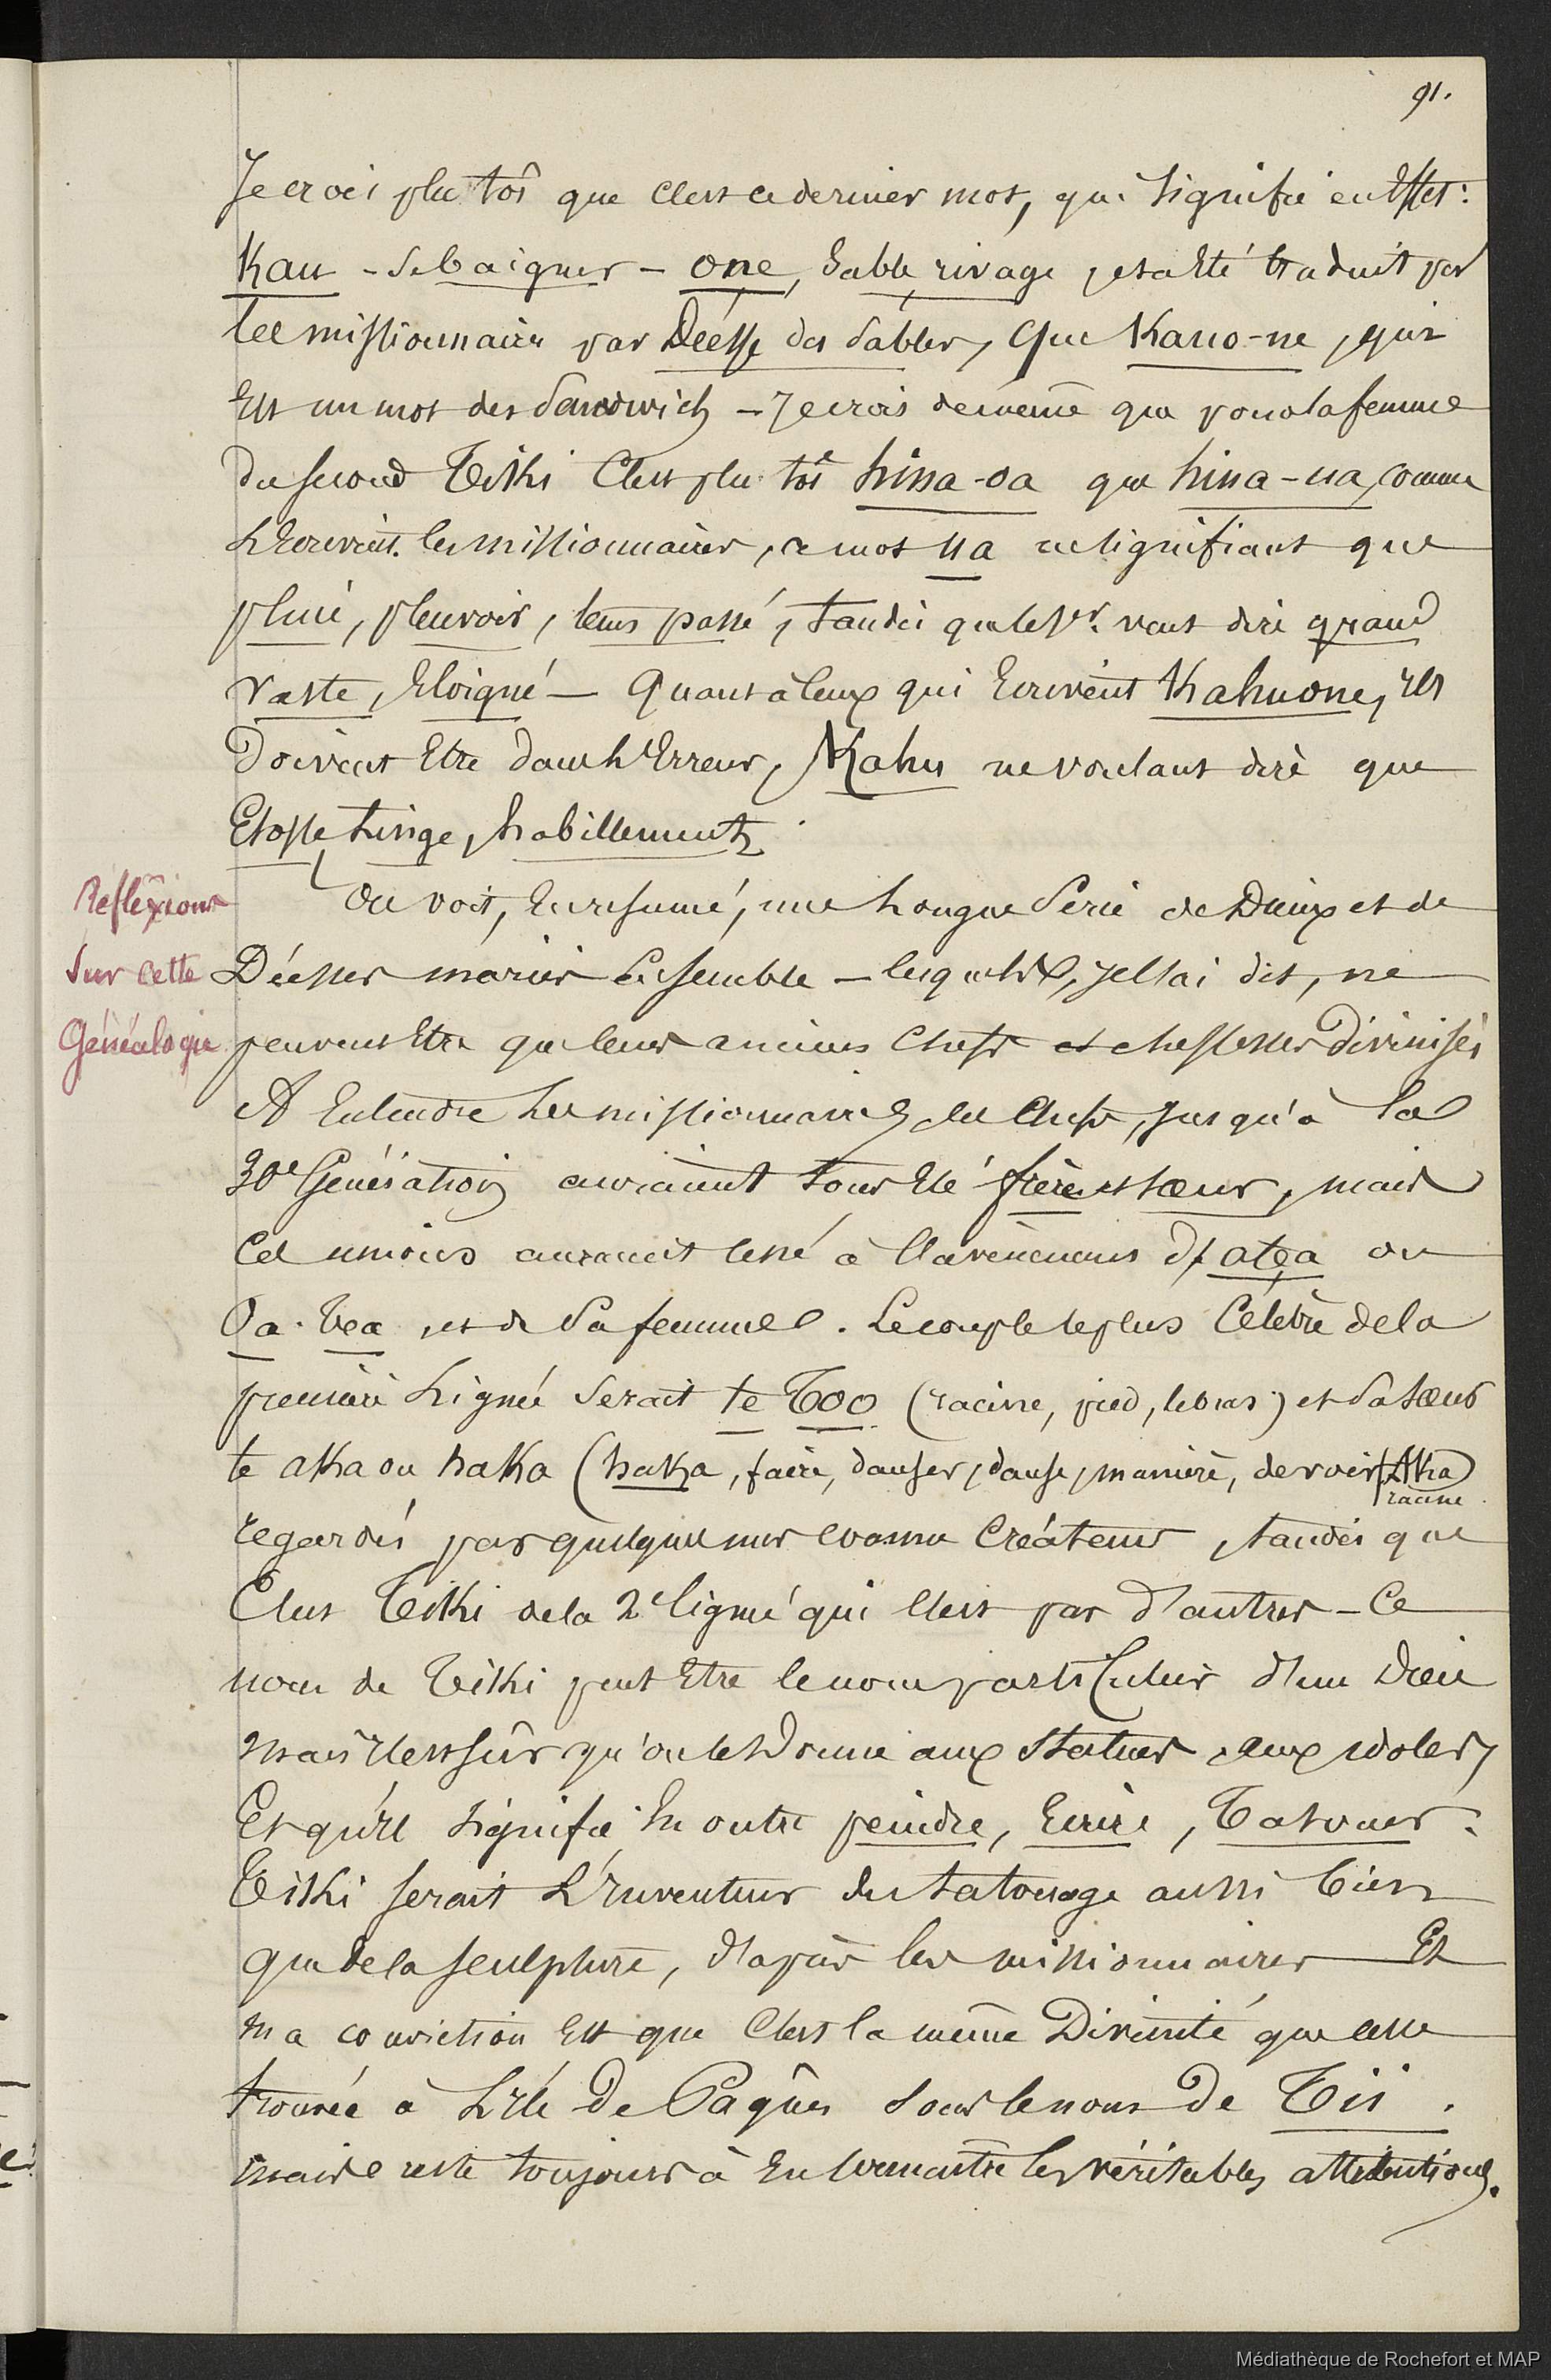 91.
Je crois plutôt que c'est ce dernier mot, qui signifie en effet :
Kau - se baigner - one, sable, rivage, et a été traduit par
les missionnaires par Déesse des sables, que Kauo-ne, qui
est un mot des Sandwich - Je crois de même que pour la femme
du second Tiki c'est plutôt hina-oa que hina-ua, comme
l'écrivent les missionnaires, ce mot ua ne signifiant que
pluie, pleuvoir, tems passé, tandis que le 1er. veut dire grand
vaste, éloigné - Quant à ceux qui écrivent Kahuone, ils
doivent être dans l'erreur, Kahu ne voulant dire que
Etoffe, linge, habillement.
Réflexions
sur cette
Généalogie
On voit, en résumé, une longue série de Dieux et de
Déesses mariés ensemble - lesquels, je l'ai dit, ne
peuvent être que leurs anciens chefs et cheffesses divinisés
A entendre les missionnaires, ces chefs, jusqu'à la
30e Génération auraient tous été frère et sœur, mais
ces unions auraient cessé à l'avènement d'atea ou
Oa-tea, et de sa femme. Le couple le plus célèbre de la
première lignée serait te Too (racine, pied, le bras) et sa sœur
te aka ou haka (haka, faire, danser, danse, manière, devoir) Aka
racine
regardés par quelques uns comme créateurs, tandis que
c'est Tiki de la 2e lignée qui l'est par d'autres - Ce
nom de Tiki peut être le nom particulier d'un Dieu
mais il est sûr qu'on le donne aux statues, aux idoles,
Et qu'il signifie en outre peindre, Ecrire, Tatouer.
Tiki serait l'inventeur du tatouage aussi bien
que de la sculpture, d'après les missionnaires Et
ma conviction est que c'est la même Divinité que celle
trouvée à l'île de Pâques sous le nom de Tii.
mais reste toujours à en connaître les véritables attributions.
Médiathèque de Rochefort et MAP